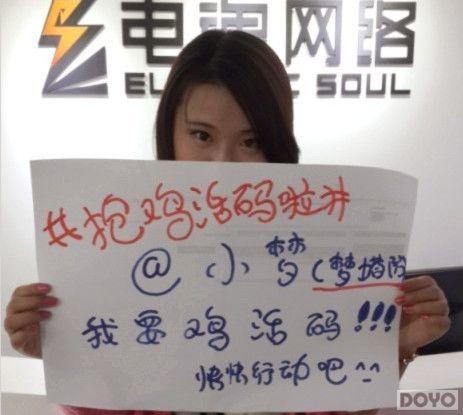 电魂网络
SOUL
#抢鸡活码啦#
@小梦(梦塔防
我要鸡活码!!!
快快行动吧^^
DOYO